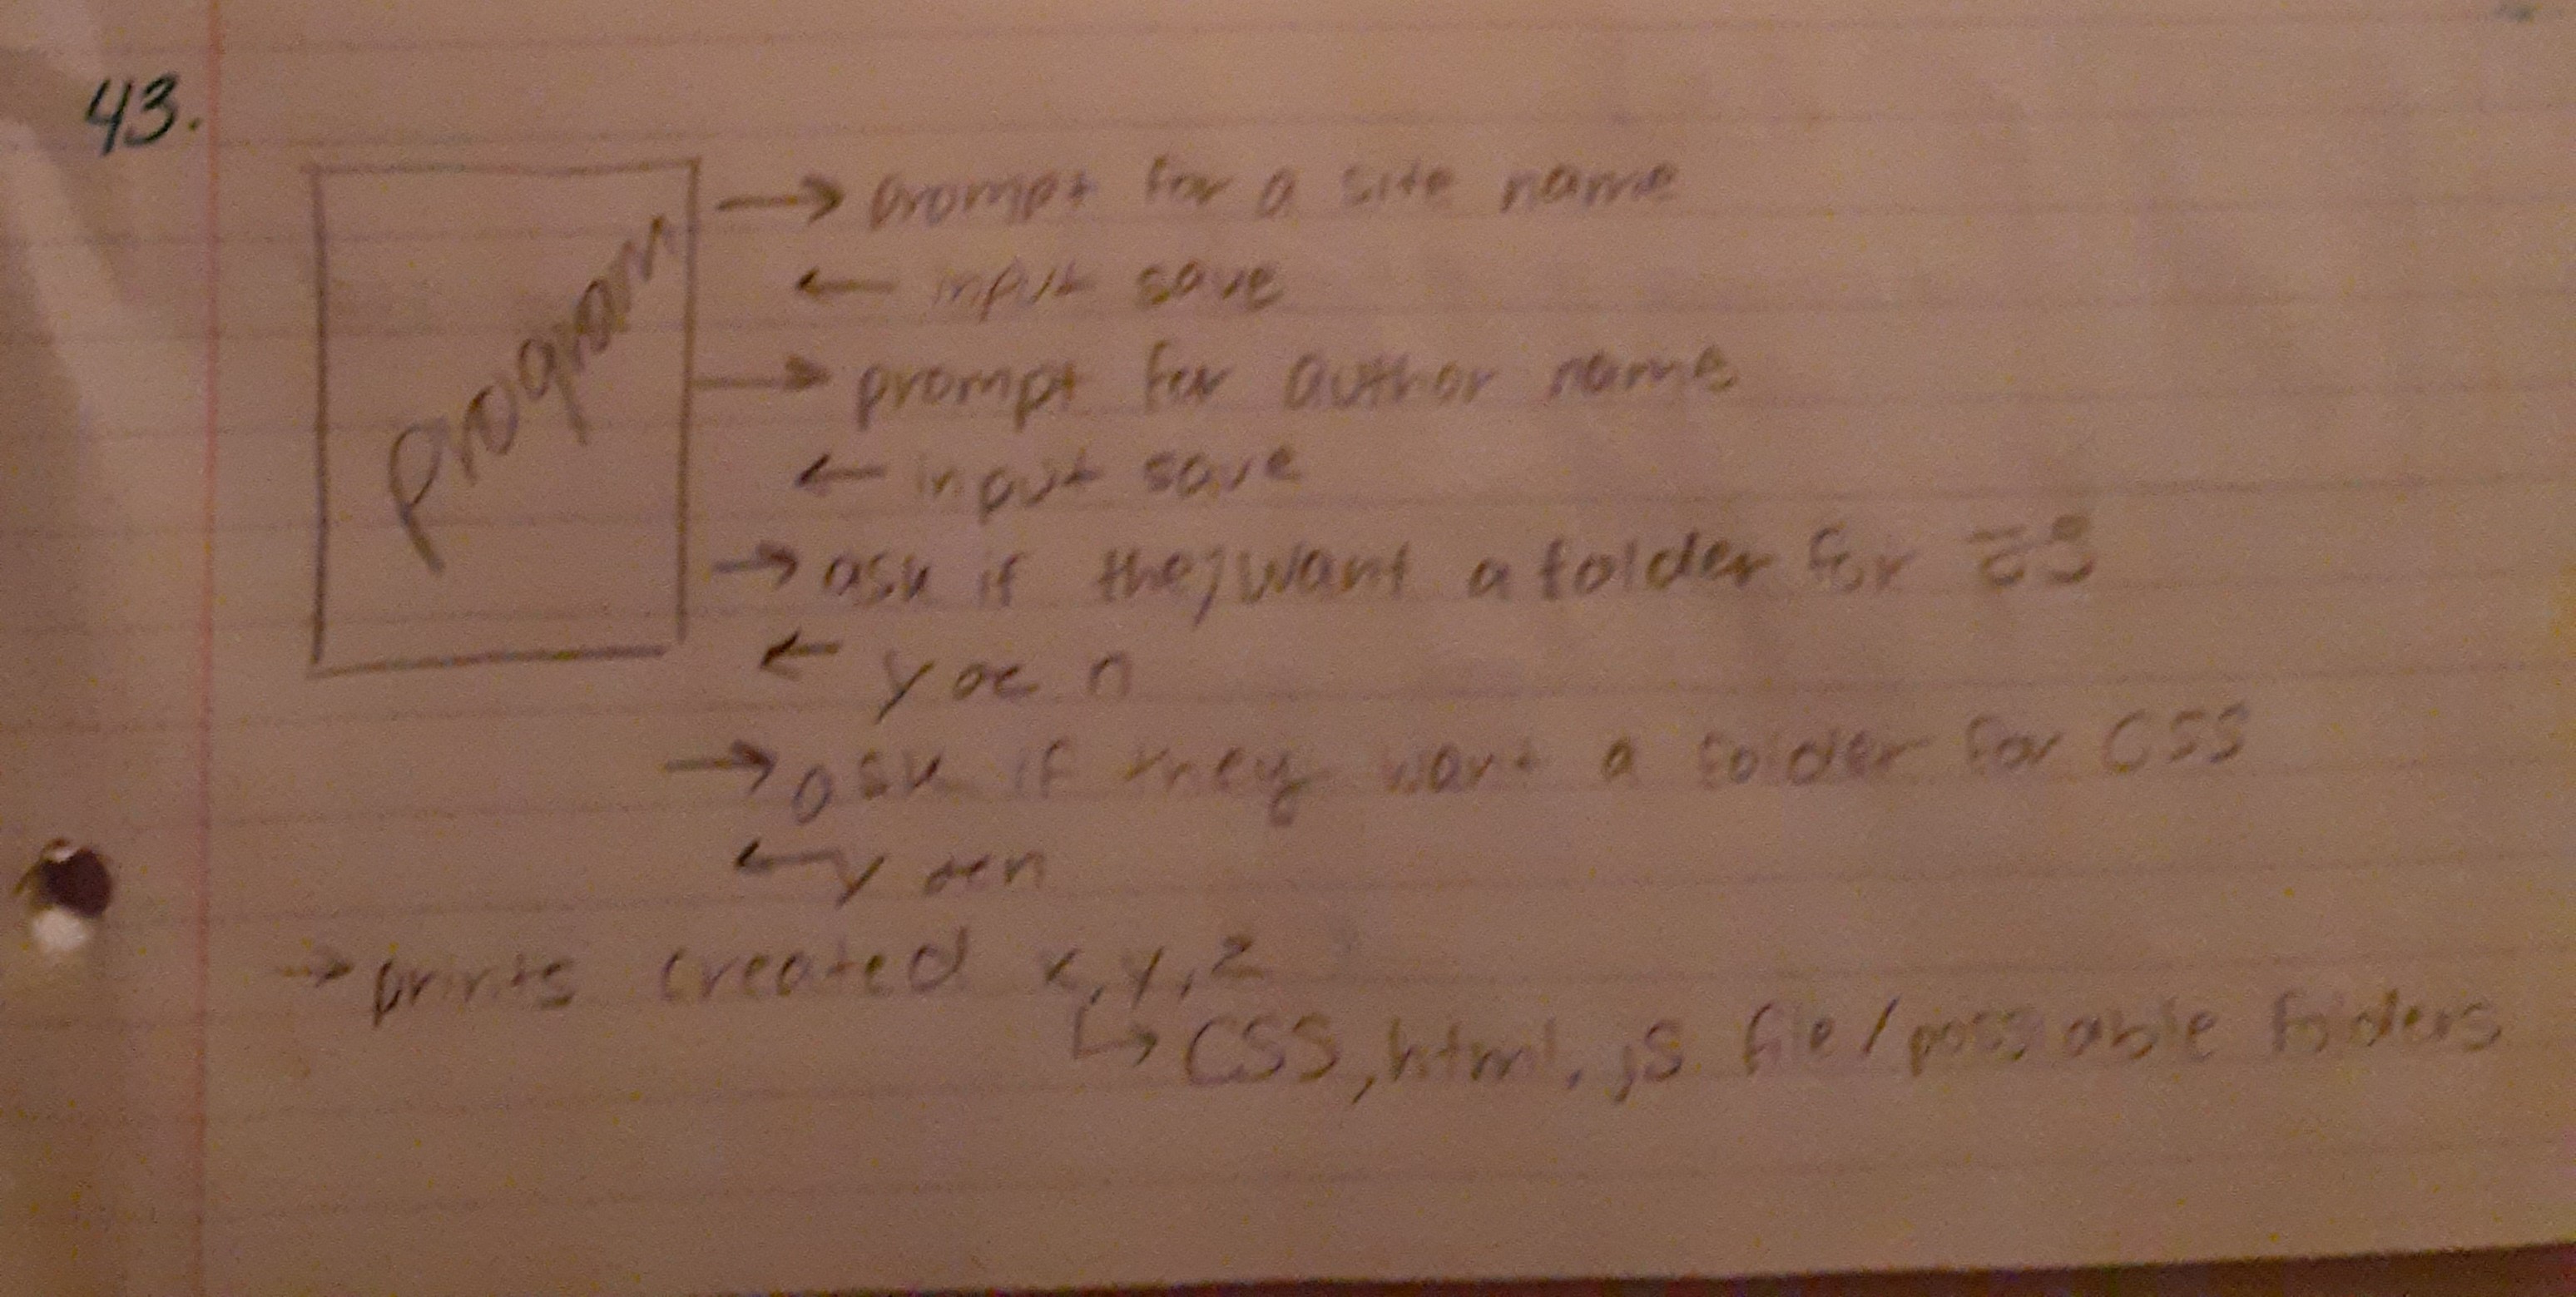 43.
Program
→ prompt for a site name
← input save
→ prompt for author name
← input save
→ ask if they want a folder for JS
← y or n
→ ask if they want a folder for CSS
← y or n
→ prints created x, y, z
↳ CSS, html, js file/possable folders